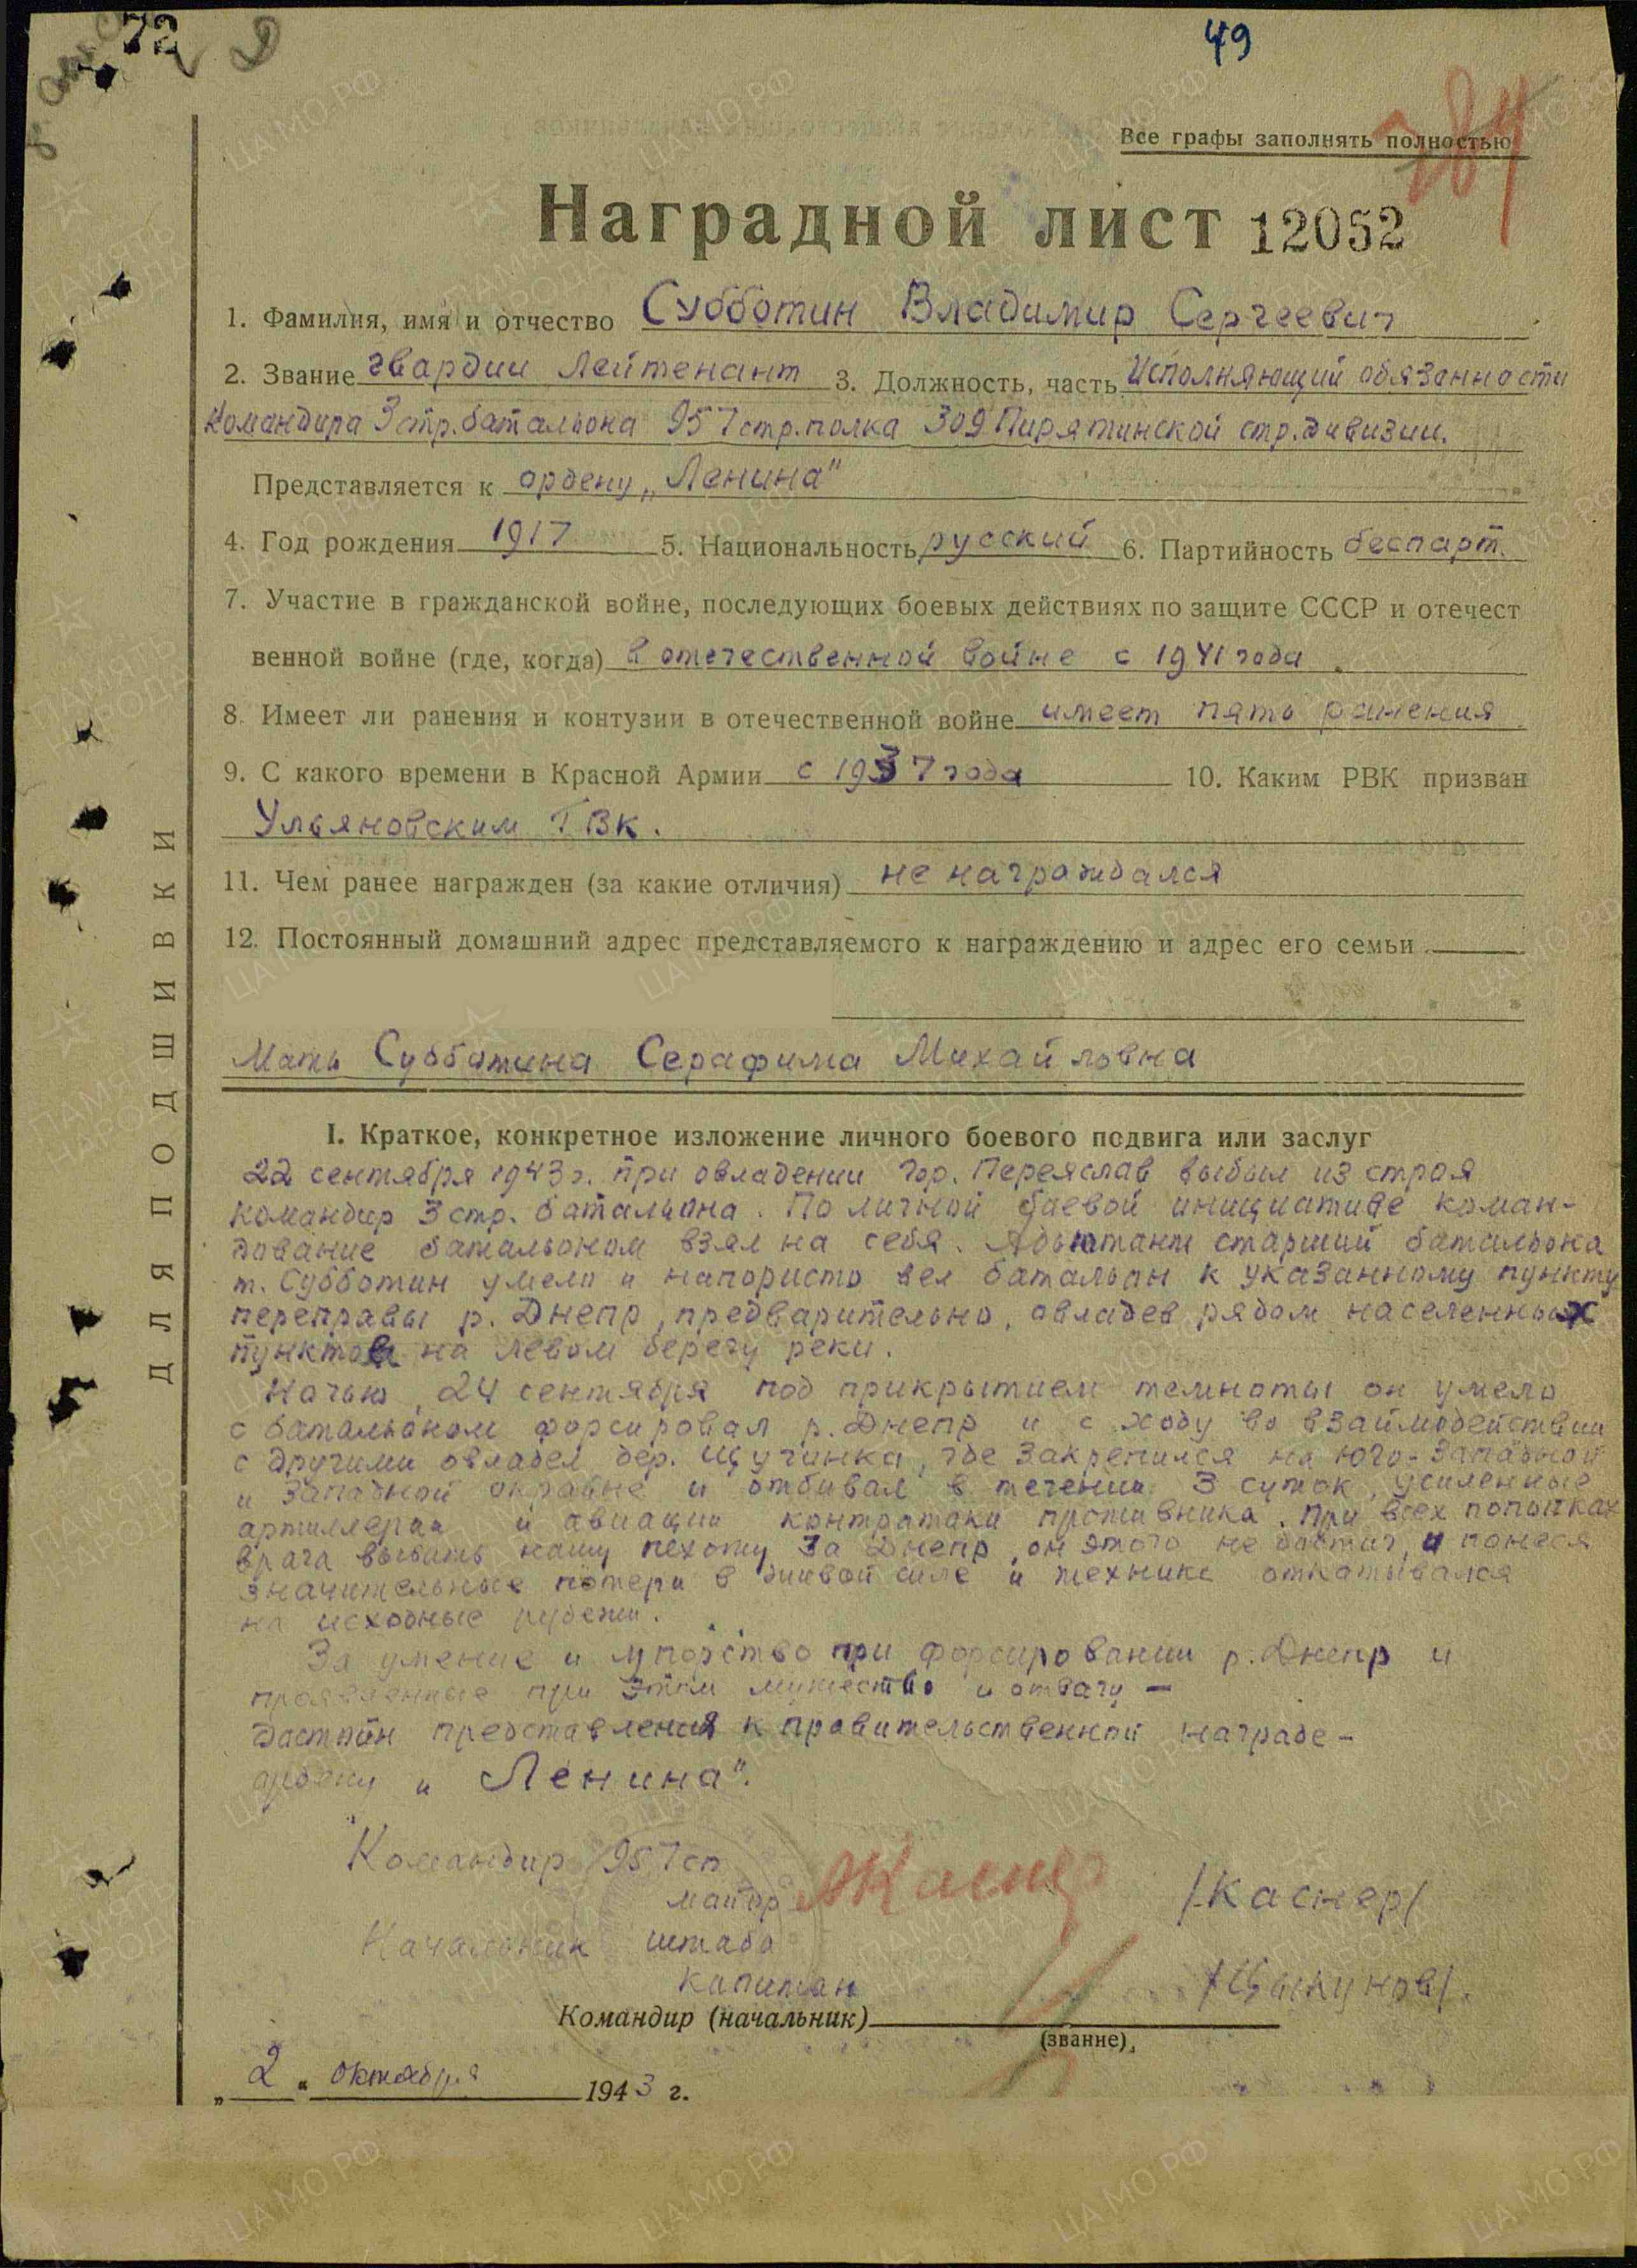 72
49
284
Все графы заполнять полностью
Наградной лист 12052
1. Фамилия, имя и отчество Субботин Владимир Сергеевич
2. Звание гвардии Лейтенант 3. Должность, часть Исполняющий обязанности
командира 3 стр. батальона 957 стр. полка 309 Пирятинской стр. дивизии.
Представляется к ордену „Ленина"
4. Год рождения 1917 5. Национальность русский 6. Партийность беспарт.
7. Участие в гражданской войне, последующих боевых действиях по защите СССР и отечест
венной войне (где, когда) в отечественной войне с 1941 года.
8. Имеет ли ранения и контузии в отечественной войне имеет пять ранения.
9. С какого времени в Красной Армии с 1937 года 10. Каким РВК призван
Ульяновским ГВК.
11. Чем ранее награжден (за какие отличия) не награждался
12. Постоянный домашний адрес представляемого к награждению и адрес его семьи
Мать Субботина Серафима Михайловна
I. Краткое, конкретное изложение личного боевого подвига или заслуг
22 сентября 1943 г. при овладении гор. Переяслав выбыл из строя
командир 3 стр. батальона. По личной боевой инициативе коман-
дование батальоном взял на себя. Адьютант старший батальона
т. Субботин умело и напористо вел батальон к указанному пункту
переправы р. Днепр, предварительно, овладев рядом населенных
пунктов на левом берегу реки.
Ночью, 24 сентября под прикрытием темноты он умело
с батальоном форсировал р. Днепр и с ходу во взаимодействии
с другими овладел дер. Щучинка, где закрепился на юго-западной
и западной окраине и отбивал в течении 3 суток, усиленные
артиллерии и авиации контратаки противника. При всех попытках
врага выбить нашу пехоту за Днепр, он этого не достиг, и понеся
значительные потери в живой силе и технике откатывался
на исходные рубежи.
За умение и упорство при форсировании р. Днепр и
проявленные при этом мужество и отвагу —
достоин представления к правительственной награде —
ордену „Ленина".
Командир 957 сп
майор
/Каснер/
Начальник штаба
капитан
Командир (начальник)
(звание)
„2" октября 1943 г.
ДЛЯ ПОДШИВКИ